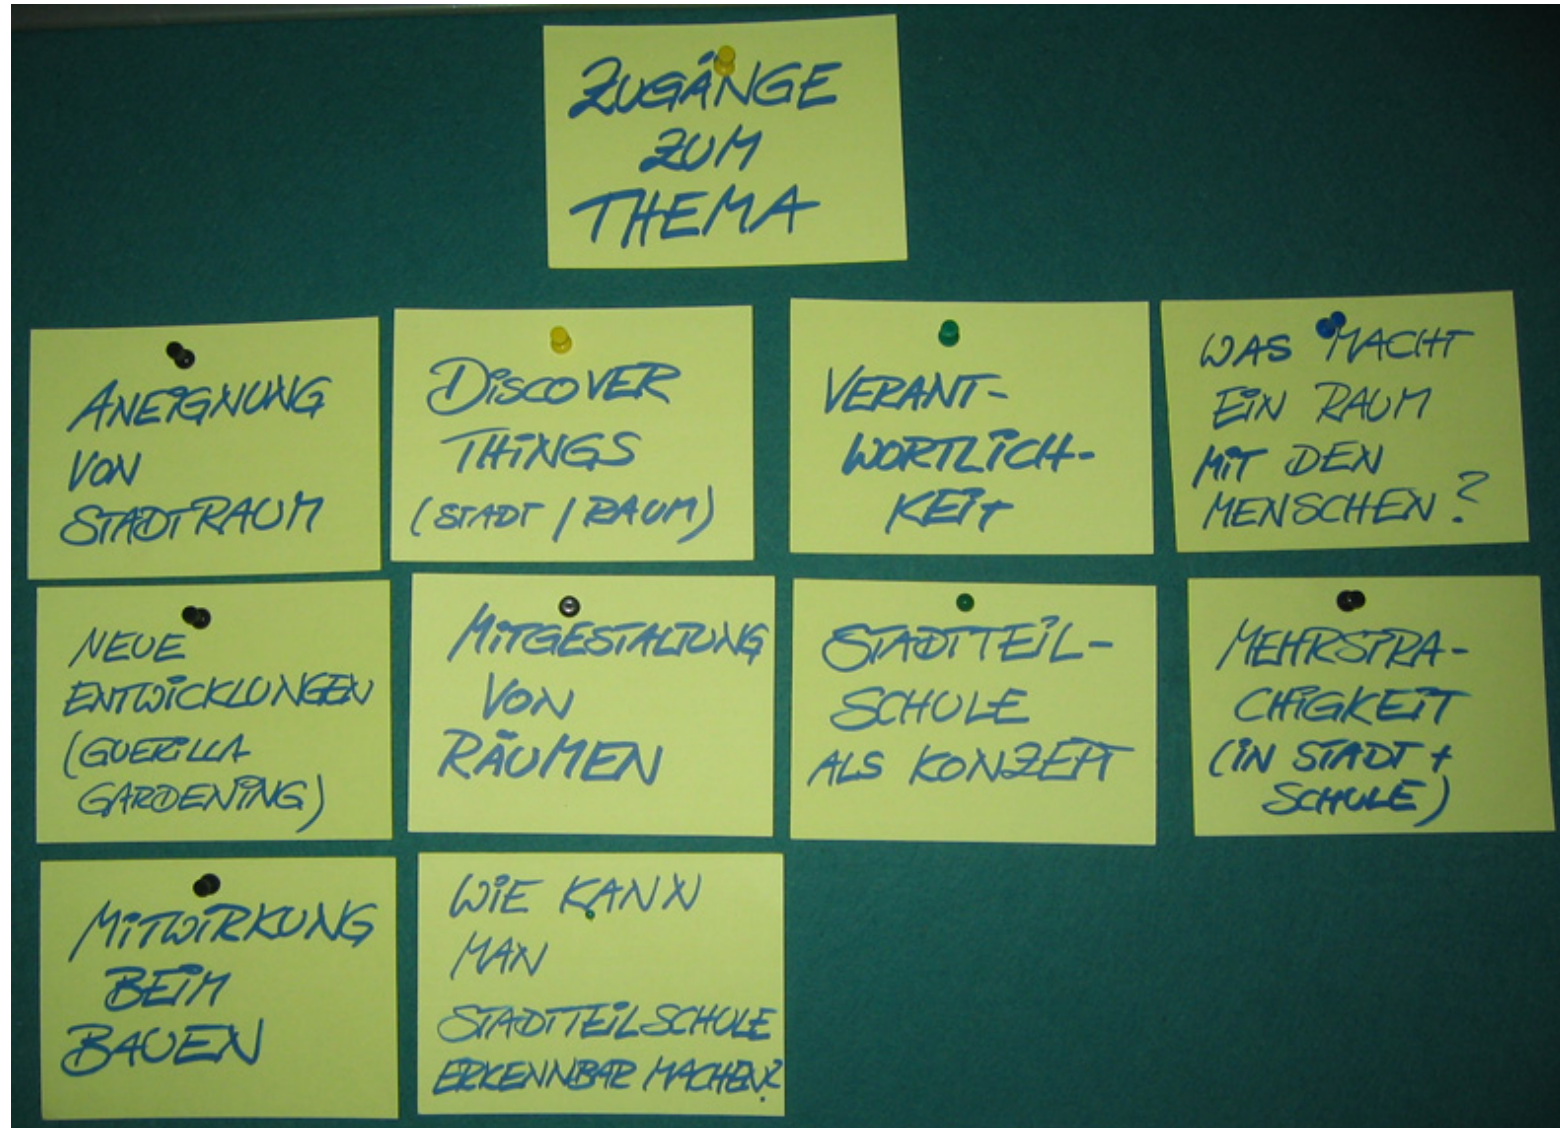 ZUGÄNGE
ZUM
THEMA
ANEIGNUNG
VON
STADTRAUM
DISCOVER
THINGS
(STADT / RAUM)
VERANT-
WORTLICH-
KEIT
WAS MACHT
EIN RAUM
MIT DEN
MENSCHEN?
NEUE
ENTWICKLUNGEN
(GUERILLA
GARDENING)
MITGESTALTUNG
VON
RÄUMEN
STADTTEIL-
SCHULE
ALS KONZEPT
MEHRSPRA-
CHIGKEIT
(IN STADT +
SCHULE)
MITWIRKUNG
BEIM
BAUEN
WIE KANN
MAN
STADTTEILSCHULE
ERKENNBAR MACHEN?